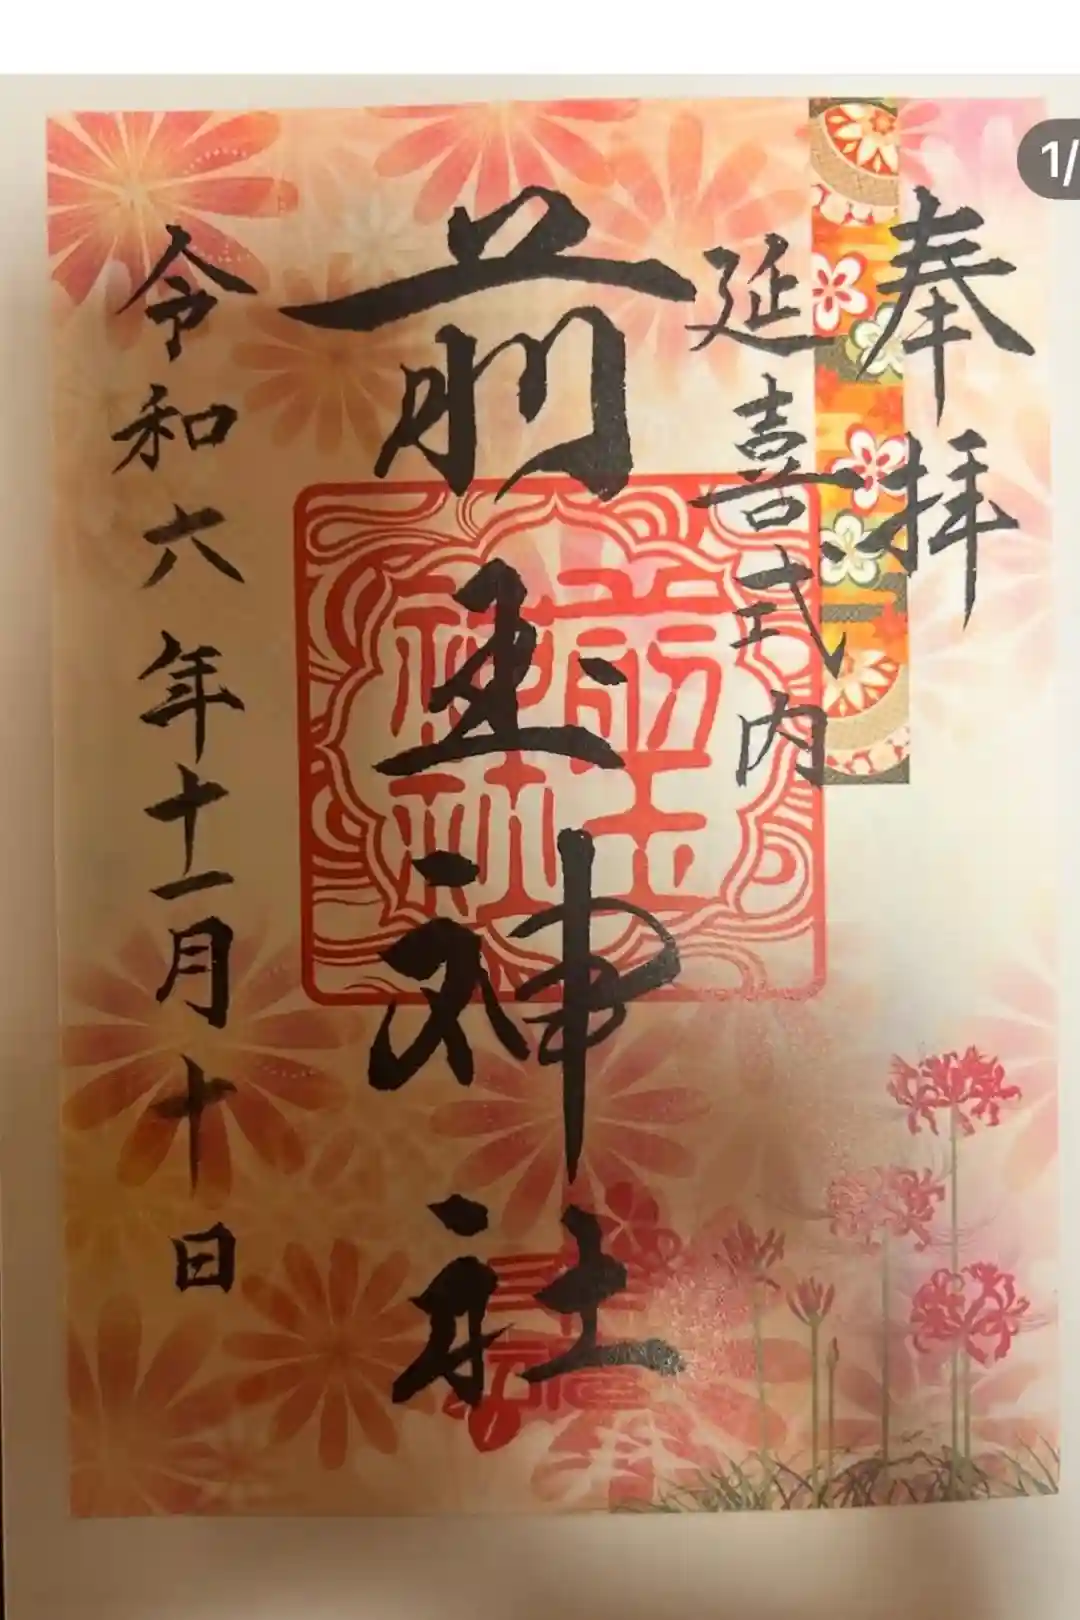 1/
奉拝
延喜式内
前玉神社
前玉神社
令和六年十一月十日